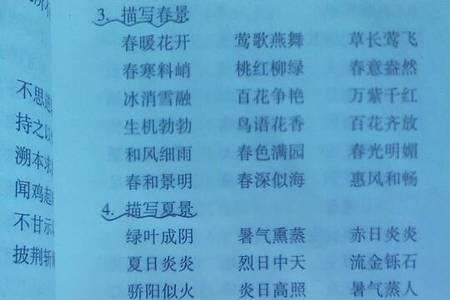 3. 描写春景
春暖花开 莺歌燕舞 草长莺飞
春寒料峭 桃红柳绿 春意盎然
冰消雪融 百花争艳 万紫千红
生机勃勃 鸟语花香 百花齐放
和风细雨 春色满园 春光明媚
春和景明 春深似海 惠风和畅
4. 描写夏景
绿叶成阴 暑气熏蒸 赤日炎炎
夏日炎炎 烈日中天 流金铄石
骄阳似火 炎日高照 暑气蒸人
不思进
持之以
溯本求
闻鸡起
不甘示
披荆斩